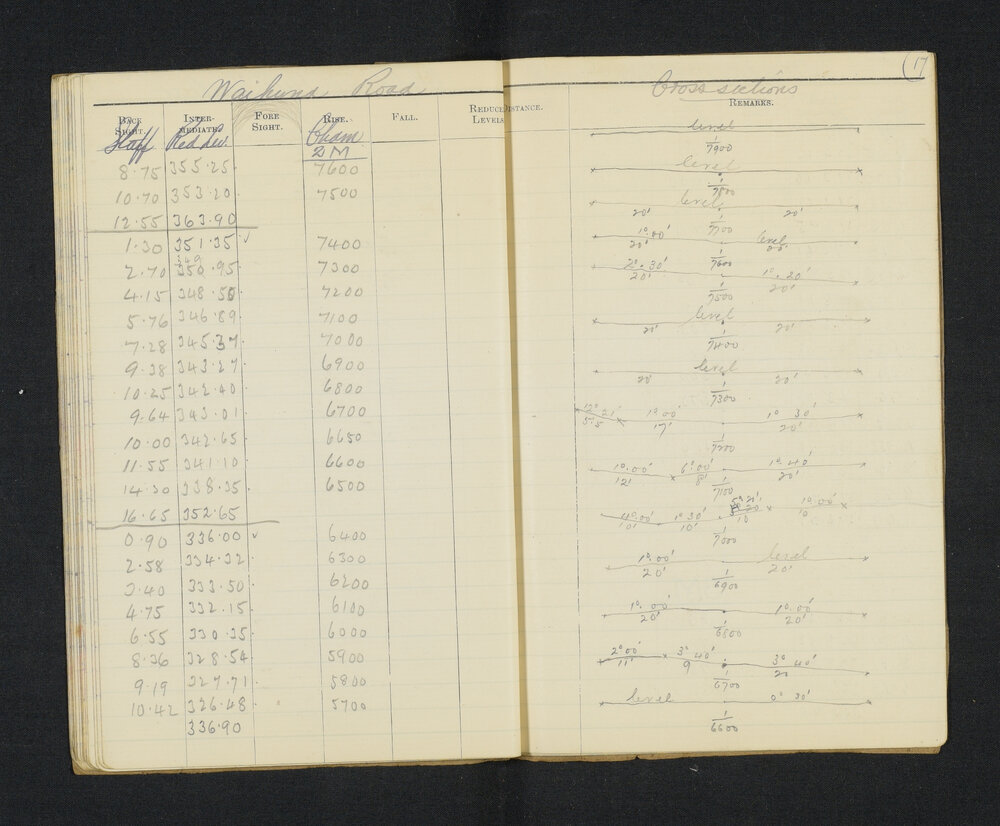 Waihund Road
BACK SIGHT. INTER-MEDIATE. FORE SIGHT. RISE. FALL. REDUCED LEVELS
Staff Red Lev Cham
2 M
8.75 355.25 7600
10.70 353.20 7500
12.55 363.90
1.30 351.35 ✓ 7400
349
2.70 350.95 7300
4.15 348.50 7200
5.76 346.89 7100
7.28 345.37 7000
9.38 343.27 6900
10.25 342.40 6800
9.64 343.01 6700
10.00 342.65 6650
11.55 341.10 6600
14.30 338.35 6500
16.65 352.65
0.90 336.00 ✓ 6400
2.58 334.32 6300
3.40 333.50 6200
4.75 332.15 6100
6.55 330.35 6000
8.36 328.54 5900
9.19 327.71 5800
10.42 326.48 5700
336.90
(17
Cross sections
DISTANCE. REMARKS.
level
1/7900
level
1/7800
level
20' 20'
1/7700
1°.00' level
20'
1/7600
2°.30' 1°.20'
20' 20'
1/7500
level
20' 20'
1/7400
level
20 20'
1/7300
12° 21' 1°.00' 1° 30'
5.75 17' 20'
1/7200
1°.00' 6°.00' 1°.40'
12' 8' 20'
1/7100
4°.00' 1°.30' 1°.00'
10' 10' 10 10
1/7000
1°.00' level
20' 20'
1/6900
1°.00' 1°.00'
20' 20'
1/6800
2°00' 3°.40' 3°.40'
11' 9 20
1/6700
level 0°.30'
1/6600